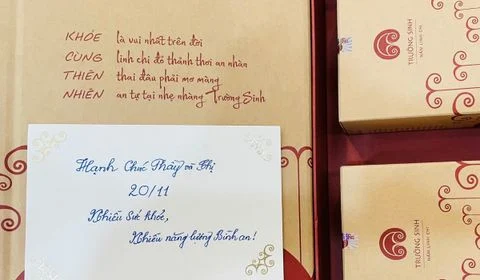 KHỎE là vui nhất trên đời
CÙNG linh chi để thảnh thơi an nhàn
THIÊN thai đâu phải mơ màng
NHIÊN an tự tại nhẹ nhàng Trường Sinh
Hạnh Chúc Thầy và Chị
20/11
Nhiều Sức khỏe,
Nhiều năng lượng Bình an!
TRƯỜNG SINH
NẤM LINH CHI
TRƯỜNG SINH
NẤM LINH CHI